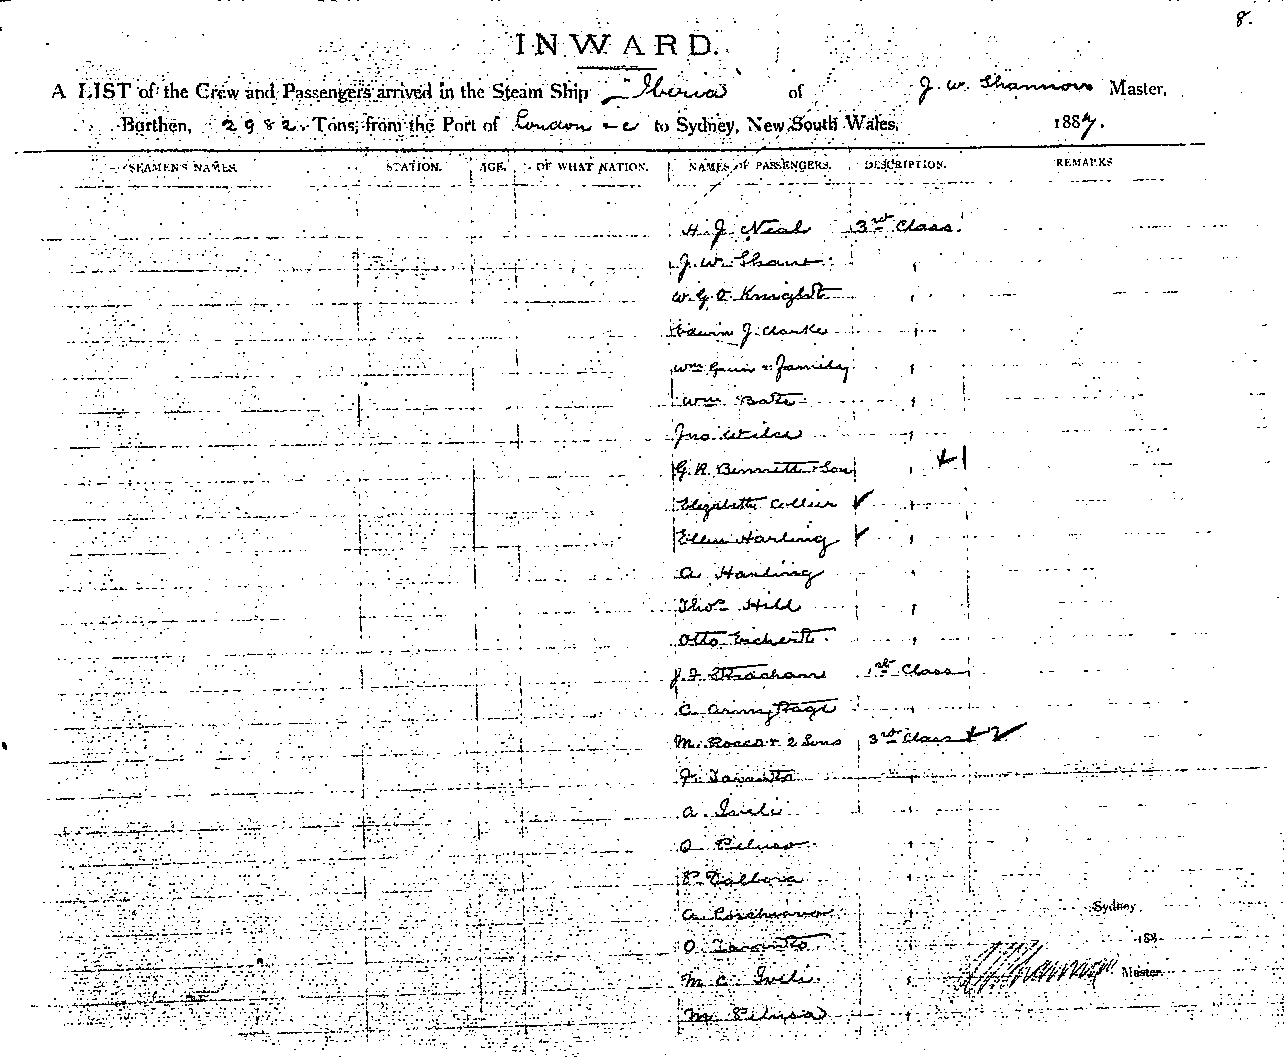 8.
INWARD.
A LIST of the Crew and Passengers arrived in the Steam Ship "Iberia" of J. W. Shannon Master,
Burthen, 2982 Tons, from the Port of London &c to Sydney, New South Wales, 1887.
SEAMEN'S NAMES. STATION. AGE. OF WHAT NATION. NAMES OF PASSENGERS. DESCRIPTION. REMARKS
H. J. Neal 3rd Class.
J. W. Shane "
W. G. O. Knight "
Edwin J. Clarke "
Wm Gunn & Family "
Wm Bate "
Jno Wilce "
G. R. Bennett & Son "
Elizabeth Collier ✓ "
Ellen Harling ✓ "
A. Harling "
Thos Hill "
Otto "
J. F. Strachan 1st Class
C. Armytage "
M. Rocco & 2 Sons 3rd Class
F. Taranto "
A. Iveli "
O. Peluso "
P. Dallora "
A. "
O. Taranto "
M. C. Iveli "
M. Pelusa "
Sydney
188
J W Shannon Master